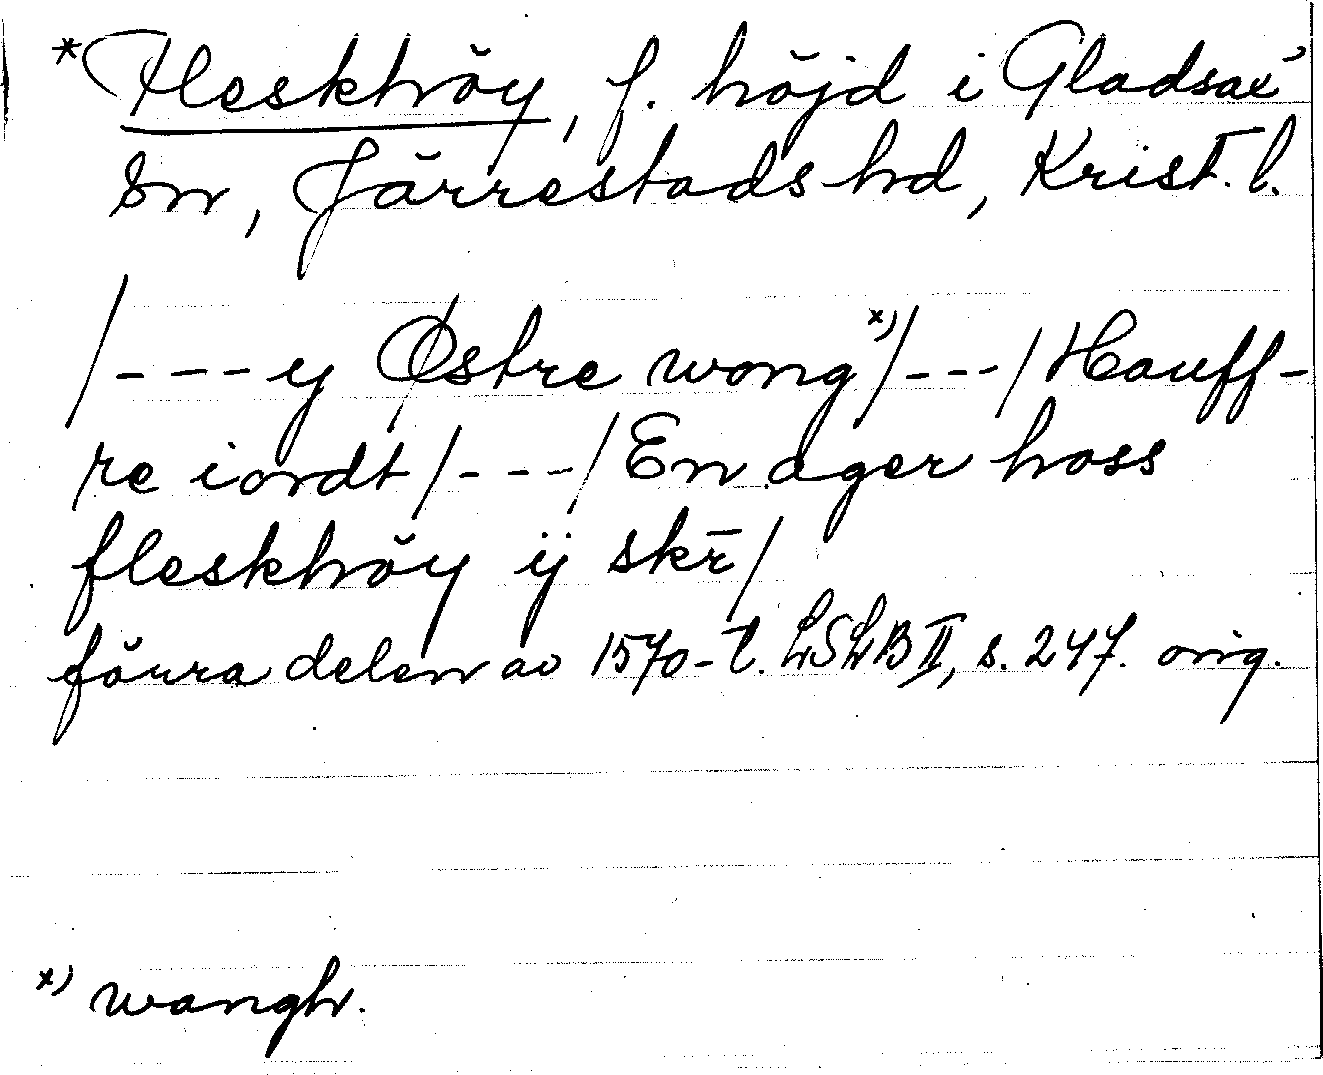 *Fleskhöy, f. höjd i Gladsax
sn, Järrestads hd, Krist. l.
/---y Østre wong x)/---/Hauff-
re iordt/---/En ager hoss
fleskhöy ij skr̄/
förra delen av 1570-t. LSLB II, s. 247. orig.
x) wangh.